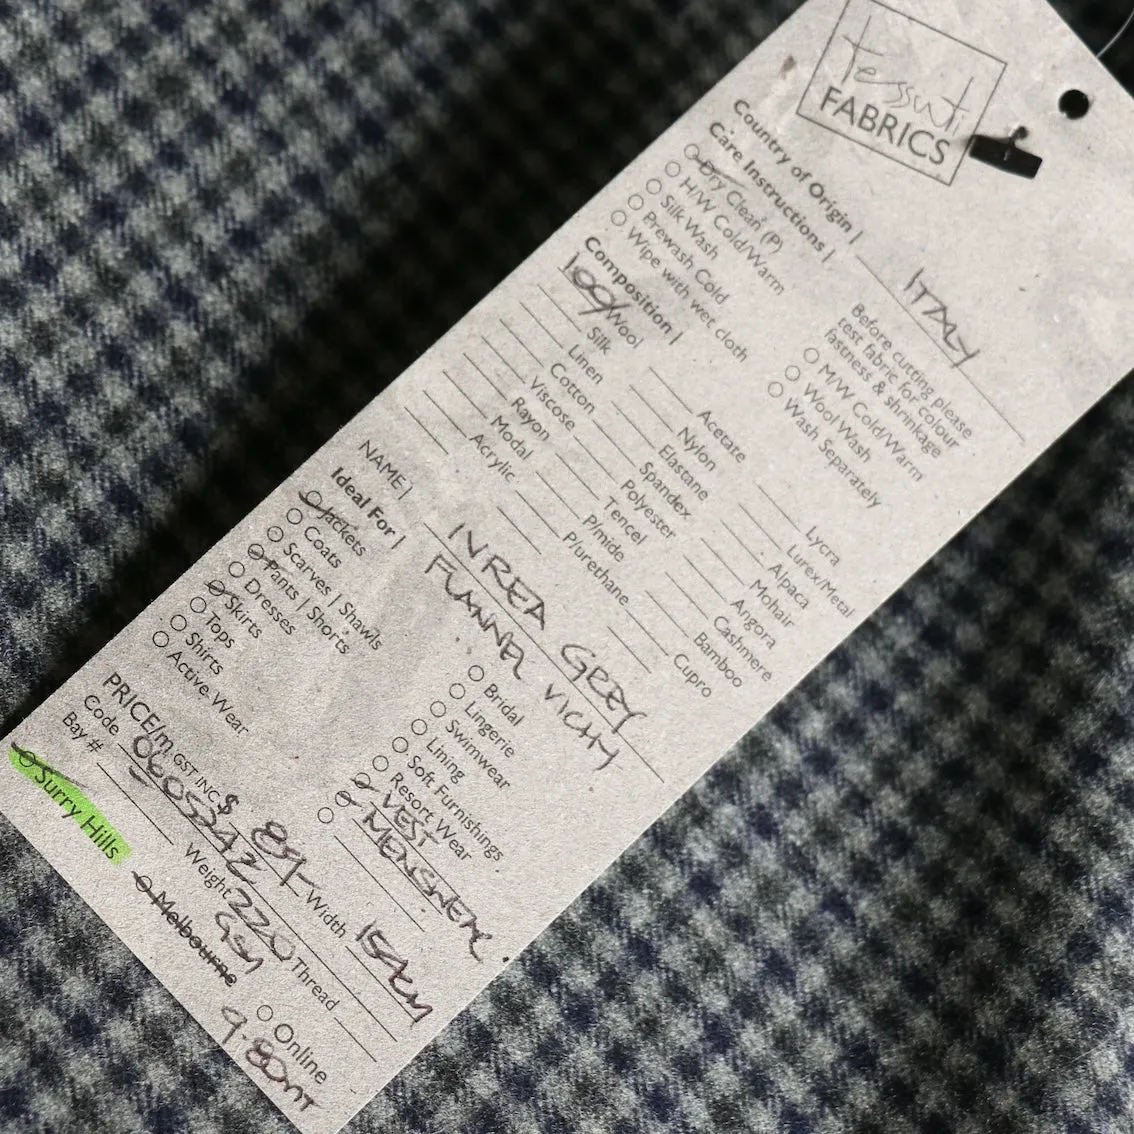 tessuti
FABRICS
Country of Origin | ITALY
Care Instructions |
Dry Clean (P)
H/W Cold/Warm
Silk Wash
Prewash Cold
Wipe with wet cloth
Before cutting please
test fabric for colour
fastness & shrinkage
M/W Cold/Warm
Wool Wash
Wash Separately
Composition |
100% Wool
Silk
Linen
Cotton
Viscose
Rayon
Modal
Acrylic
Acetate
Nylon
Elastane
Spandex
Polyester
Tencel
P/mide
P/urethane
Lycra
Lurex/Metal
Alpaca
Mohair
Angora
Cashmere
Bamboo
Cupro
NAME | IVREA GREY
FLANNEL VICHY
Ideal For |
Jackets
Coats
Scarves | Shawls
Pants | Shorts
Dresses
Skirts
Tops
Shirts
Active Wear
Bridal
Lingerie
Swimwear
Lining
Soft Furnishings
Resort Wear
VEST
MENSWEAR
PRICE/m GST INC $ 89- Width 154cm
Code Weight 220 GSM Thread
Bay #
Surry Hills
Melbourne
Online
9.80mt